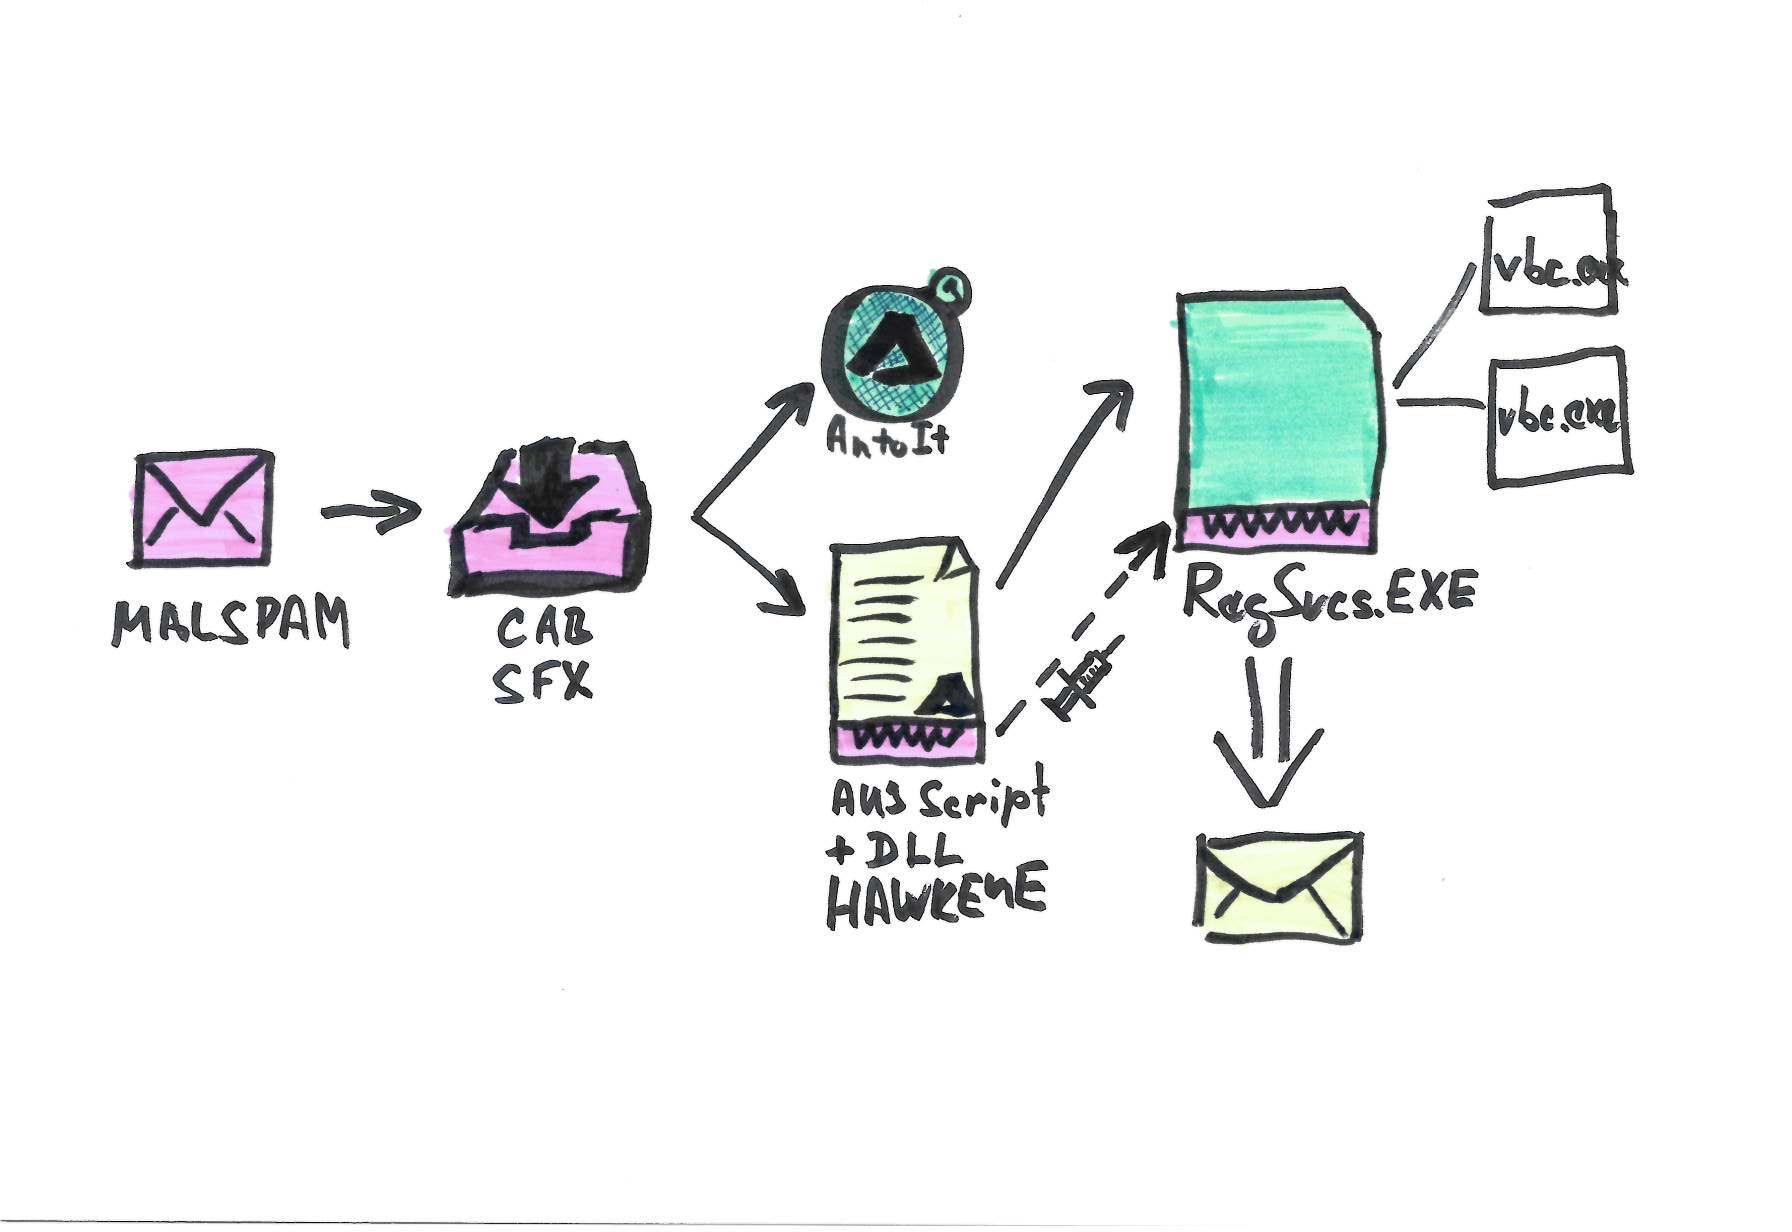 MALSPAM
CAB
SFX
AutoIt
AU3 Script
+ DLL
HAWKEYE
RegSvcs.EXE
vbc.exe
vbc.exe